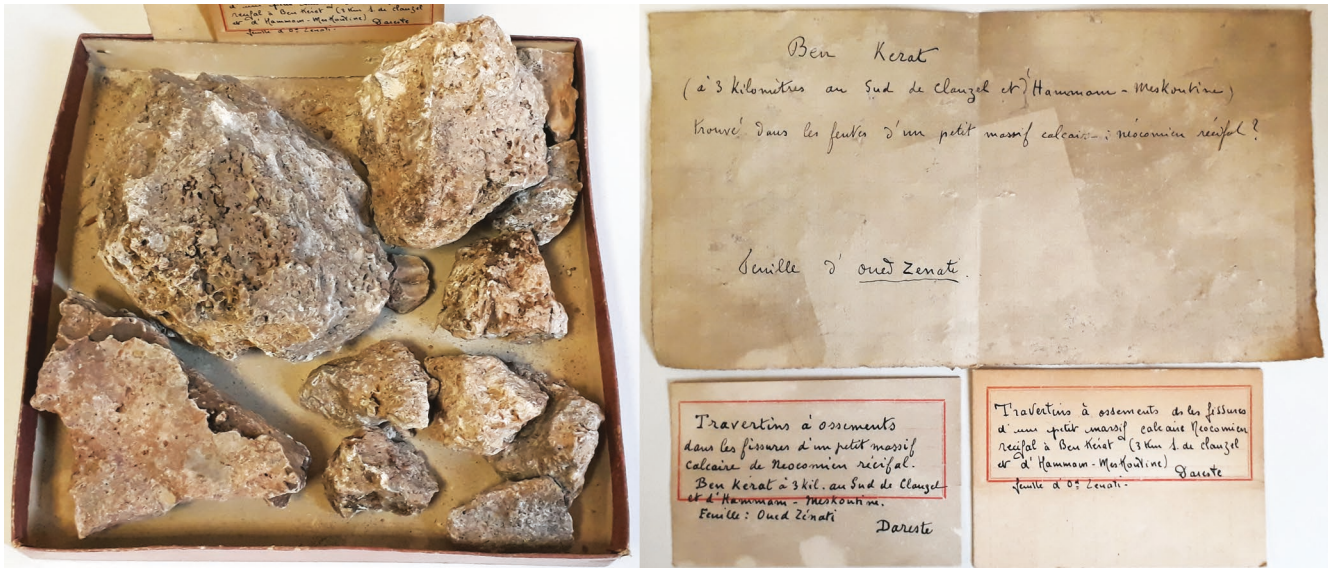 d'une petit
recifal à Ben Kerat (3 Km S. de Clauzel
et d'Hammam-Meskoutine) Dareste
feuille d'Od Zenati.
Ben Kerat
(à 3 Kilomètres au Sud de Clauzel et d'Hammam-Meskoutine)
trouvé dans les fentes d'un petit massif calcaire : néocomien récifal ?
Feuille d'oued Zenati.
Travertins à ossements
dans les fissures d'un petit massif
calcaire de Neocomien récifal.
Ben Kerat à 3 kil. au Sud de Clauzel
et d'Hammam-Meskoutine.
Feuille : Oued Zénati
Dareste
Travertins à ossements ds les fissures
d'une petit massif calcaire Neocomien
recifal à Ben Kerat (3 Km S. de Clauzel
et d'Hammam-Meskoutine)
Dareste
feuille d'Od Zenati.